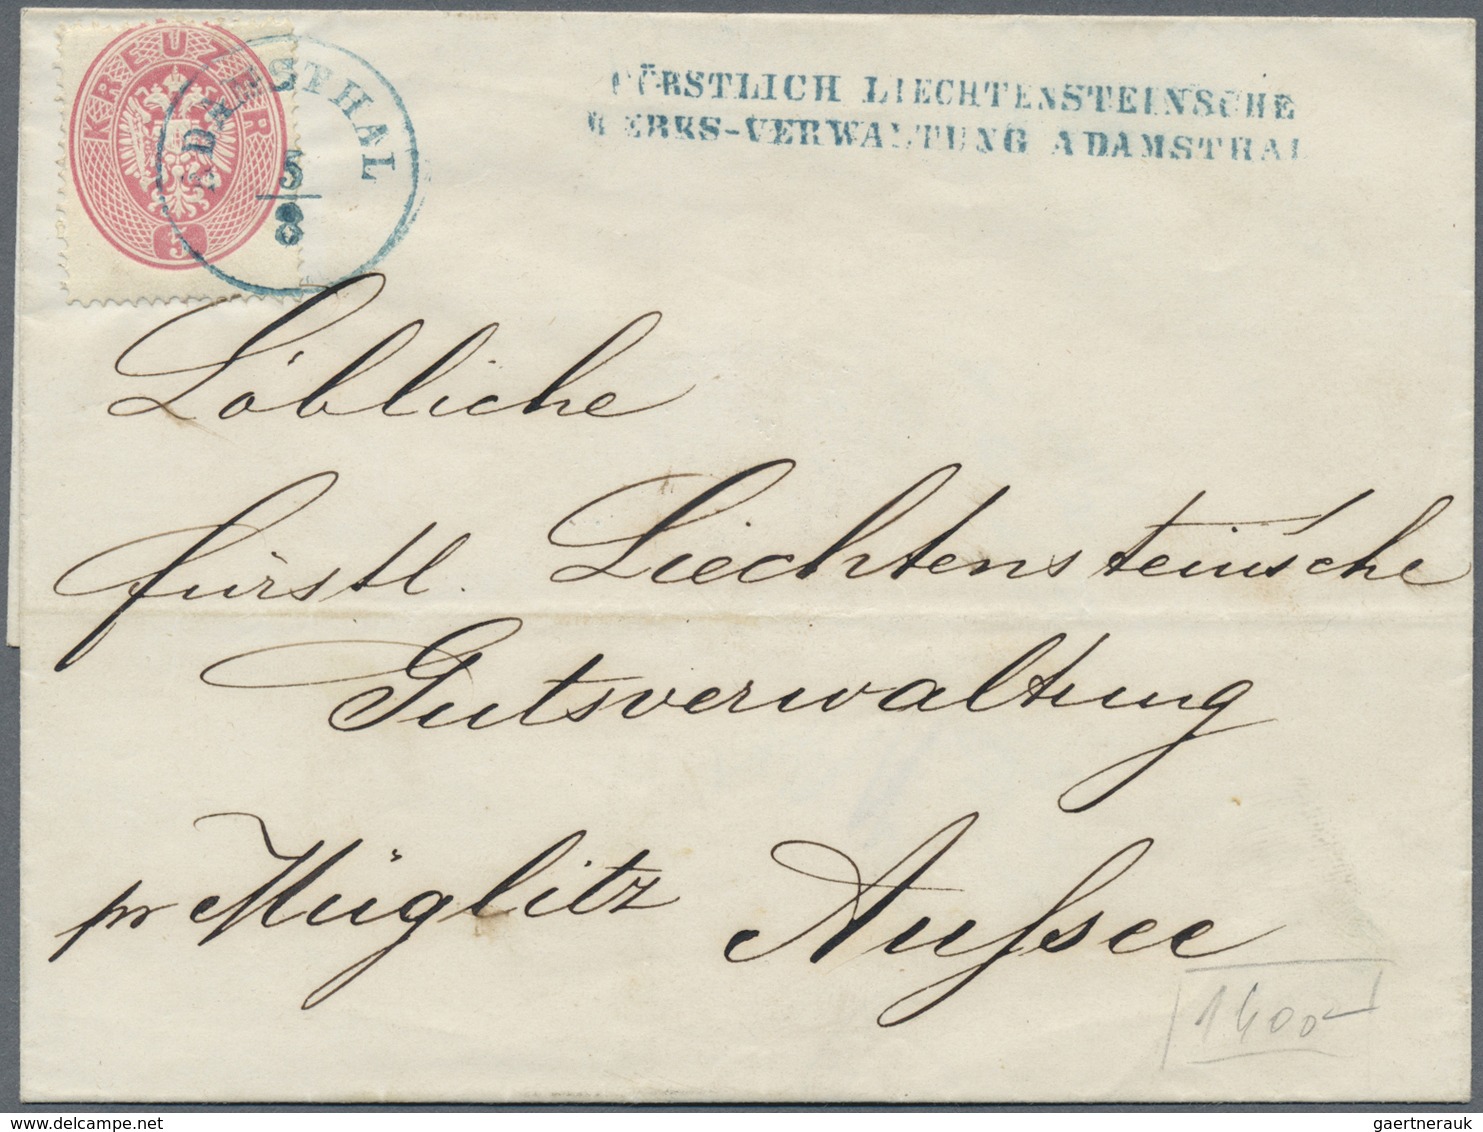 KREUZER
5
ADAMSTHAL
5
8
FÜRSTLICH LIECHTENSTEINSCHE
WERKS-VERWALTUNG ADAMSTHAL
Löbliche
fürstl. Liechtensteinsche
Gutsverwaltung
pr Müglitz Aussee
1400
gaertnerauk